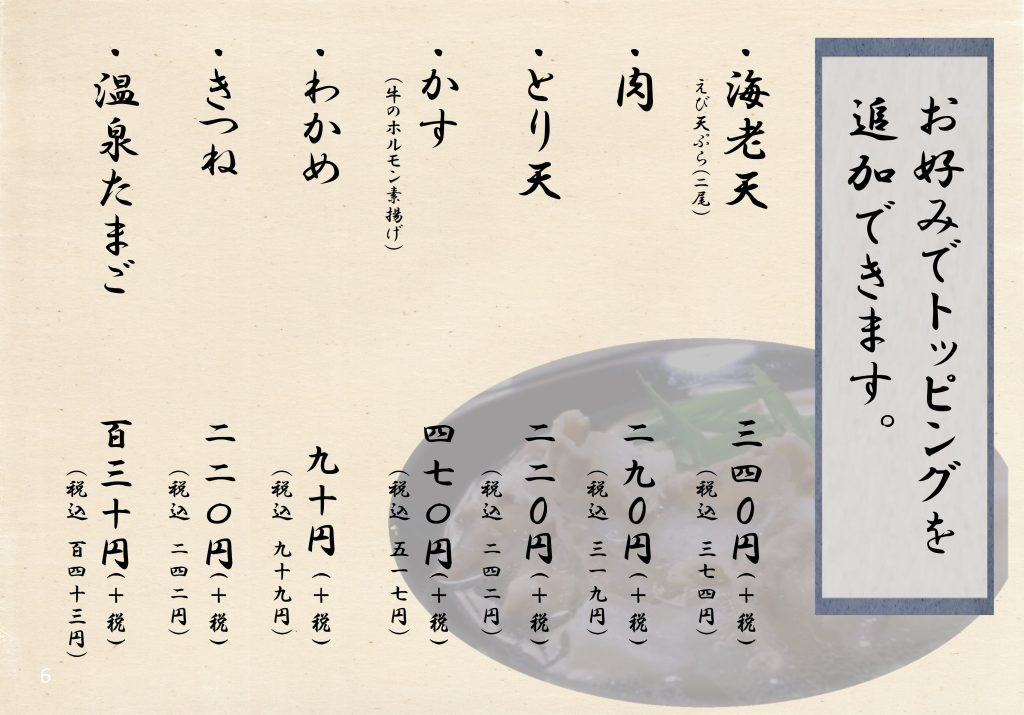 お好みでトッピングを
追加できます。
・海老天
えび天ぷら(二尾)
三四〇円(+税)
(税込 三七四円)
・肉
二九〇円(+税)
(税込 三一九円)
・とり天
二二〇円(+税)
(税込 二四二円)
・かす
(牛のホルモン素揚げ)
四七〇円(+税)
(税込 五一七円)
・わかめ
九十円(+税)
(税込 九十九円)
・きつね
二二〇円(+税)
(税込 二四二円)
・温泉たまご
百三十円(+税)
(税込 百四十三円)
6